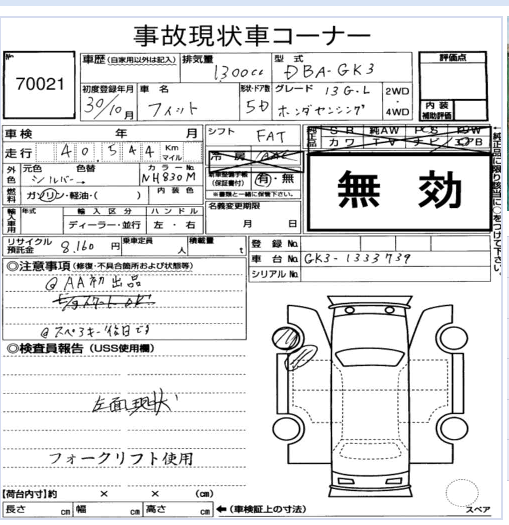 事故現状車コーナー
No. 70021
車歴 (自家用以外は記入) 排気量 1300cc 型式 DBA-GK3 評価点
初度登録年月 30/10月 車名 フィット 形状・ドア数 5D グレード 13G・L ホンダセンシング 2WD・4WD 内装補助評価
車検 年 月 シフト FAT 純正品 SR 純AW PS PW カワ TV ナビ エアB
走行 40,544 Km マイル 冷房 AAC
外色 元色 シルバー 色替 カラーNo. NH830M 新車整備手帳(保証書付) 有・無 ※書類と一緒に保管下さい。
燃料 ガソリン・軽油・( ) 内装色
無効
輸入車用 年式 輸入区分 ディーラー・並行 ハンドル 左・右 名義変更期限 月 日
←純正品に限り該当に○をつけて下さい。
リサイクル預託金 8,160円 乗車定員 人 積載量 t 登録No.
車台No. GK3-1333739
シリアルNo.
◎注意事項 (修復・不具合箇所および状態等)
@AA初出品
@スペアキー後日です
◎検査員報告 (USS使用欄)
左面現状
フォークリフト使用
【荷台内寸】約 × × (cm)
長さ cm 幅 cm 高さ cm ←(車検証上の寸法)
スペア